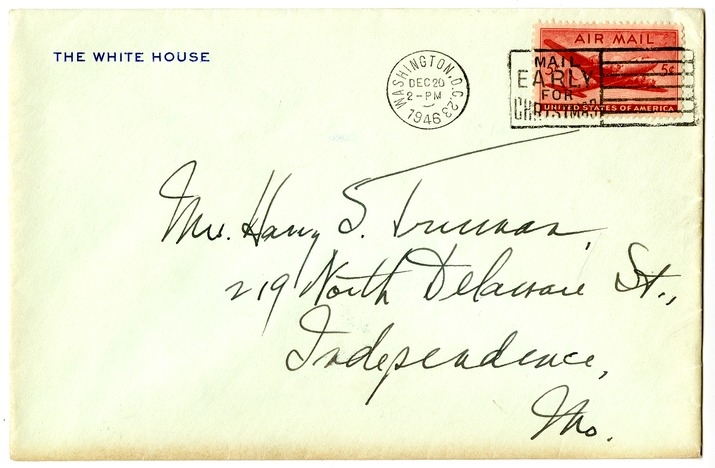 THE WHITE HOUSE
WASHINGTON, D.C. 23
DEC 20
2 - PM
1946
AIR MAIL
MAIL
EARLY
FOR
CHRISTMAS
5¢ 5¢
UNITED STATES OF AMERICA
Mrs. Harry S. Truman,
219 North Delaware St.,
Independence,
Mo.